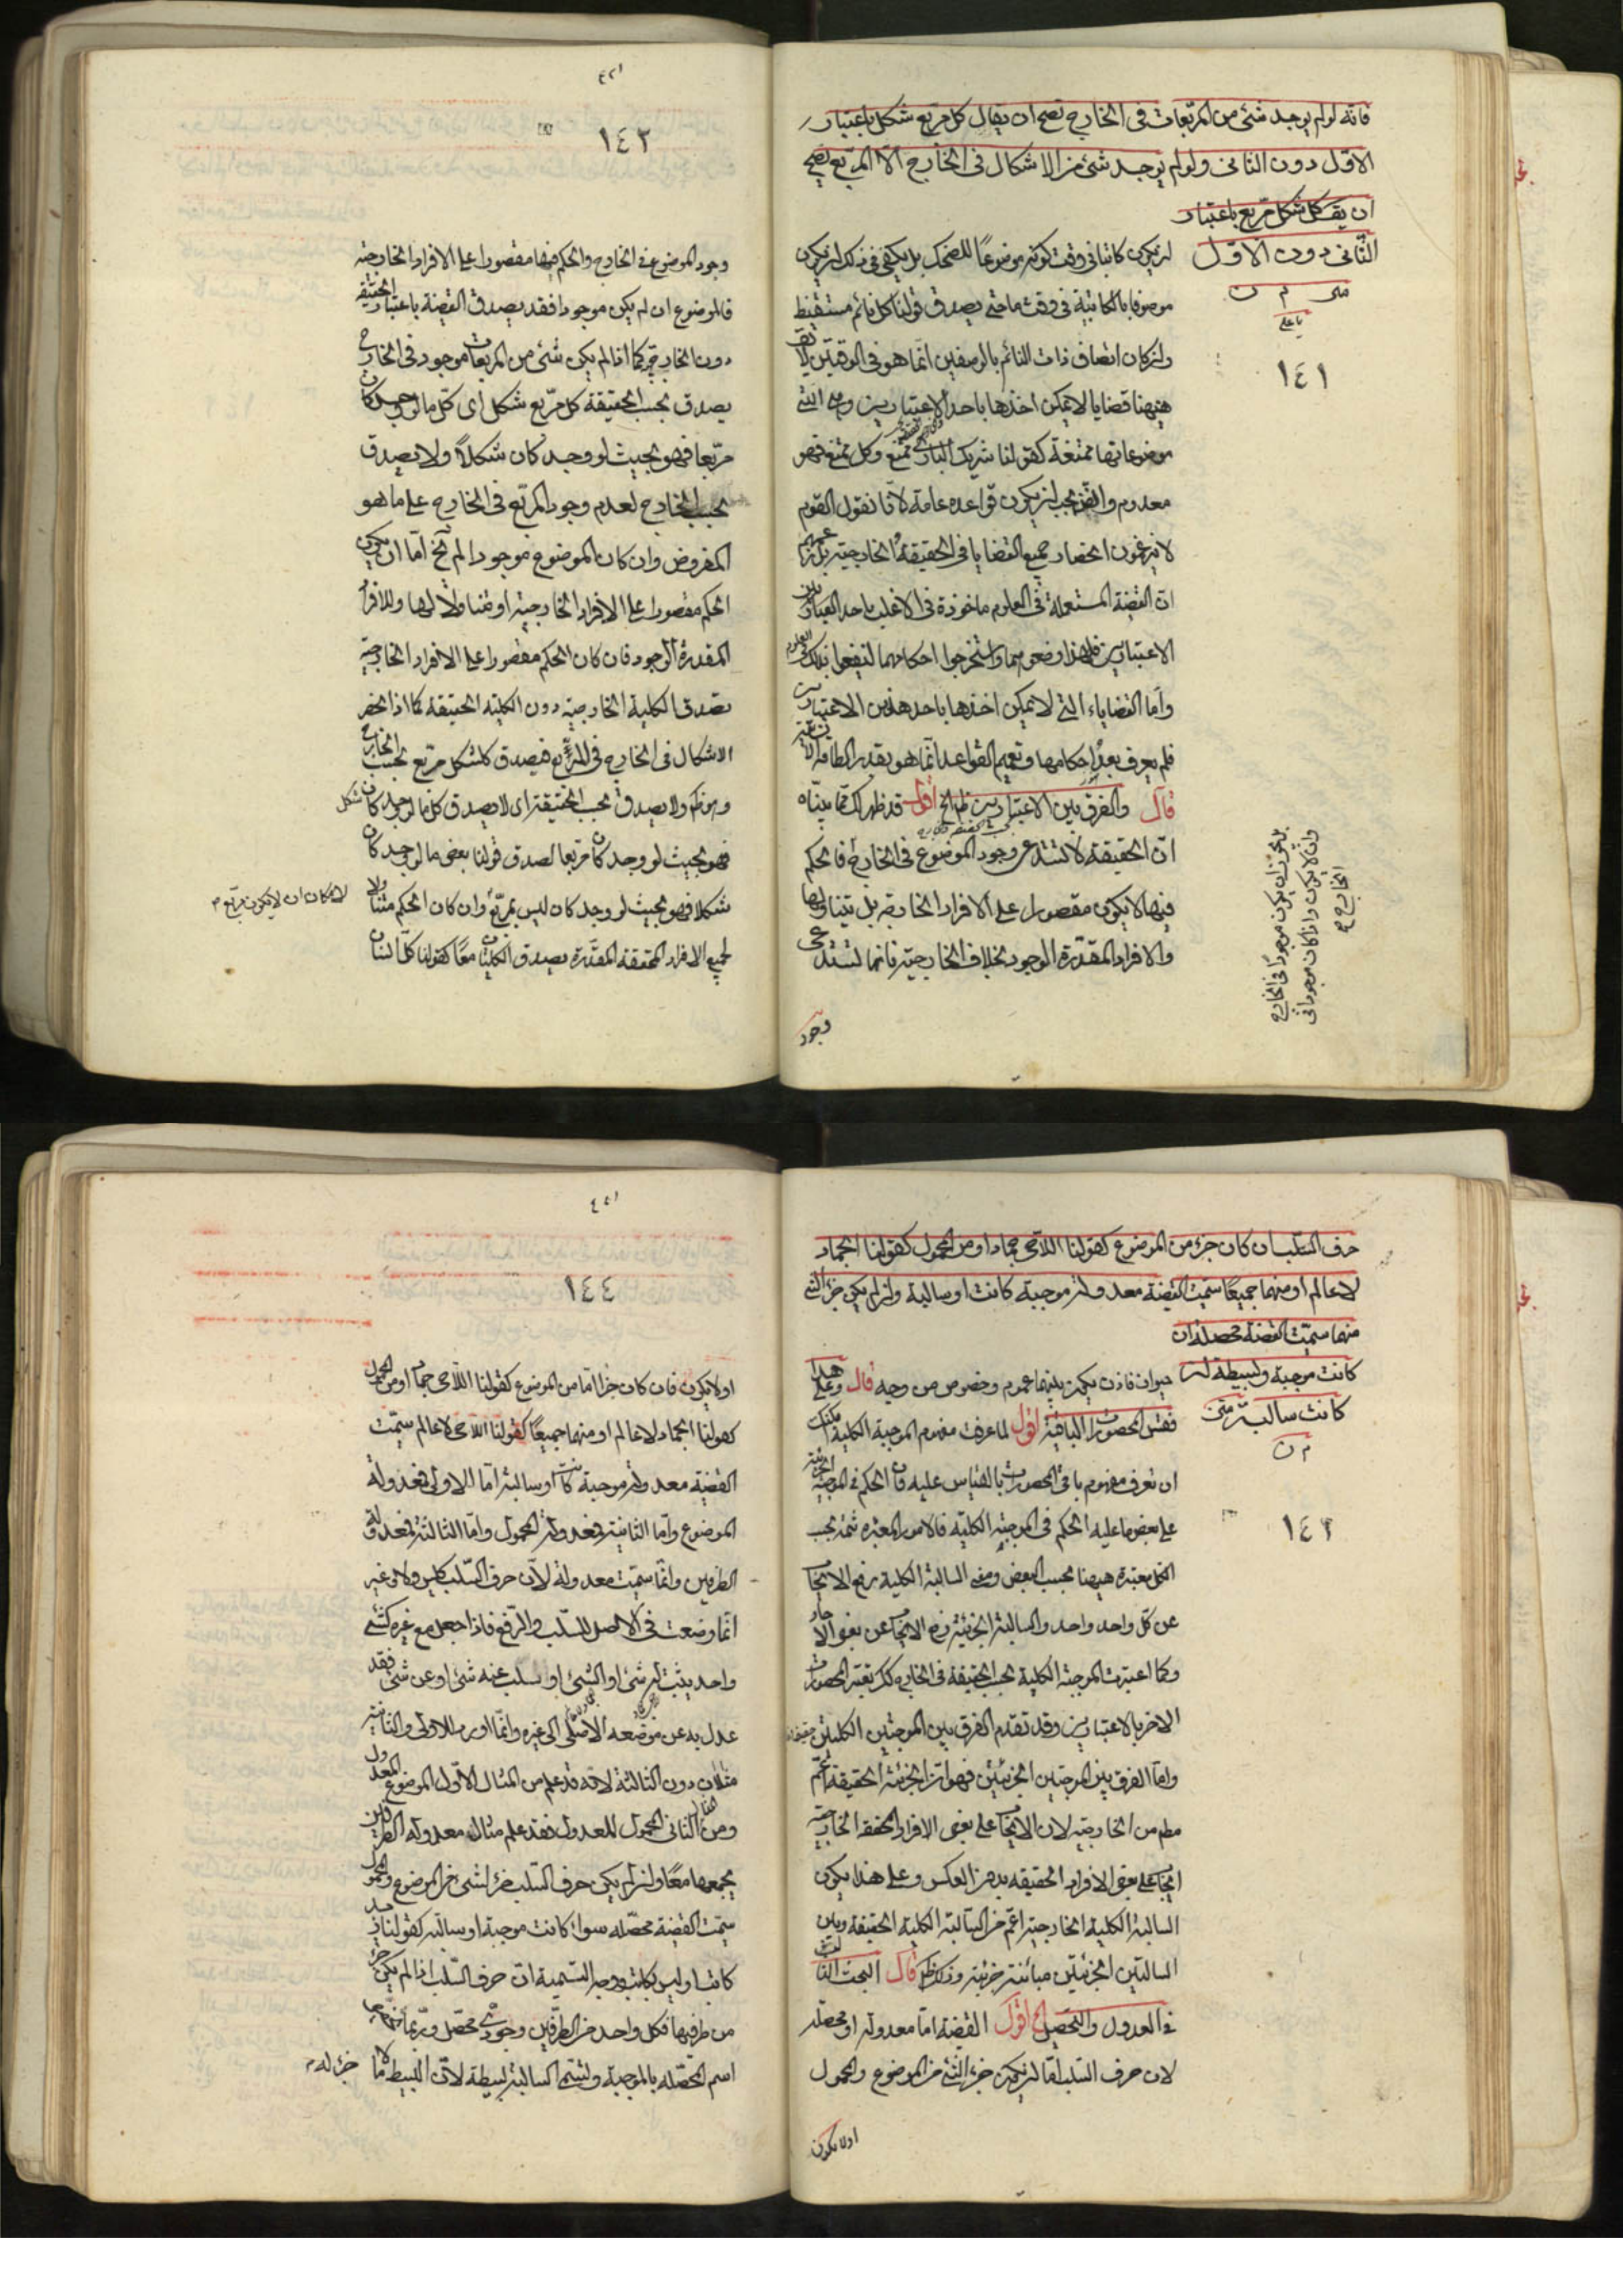 فانه لو لم يوجد شئ من المربّعات فى الخارج تصح ان يقال كل مربع شكل باعتبار
الاوّل دون الثانى ولو لم يوجد شئ من الاشكال فى الخارج الّا المربّع يصح
ان يقـ كل شكل مربّع باعتبار
الثّانى دون الاوّل
متن
يا على
١٤١
ان يكون كاتبا فى وقت كونه موضوعًا للضحك بل يكفى فى ذلك ان يكون
موصوفا بالكاتبية فى وقت ما حتى يصدق قولنا كل نائم مستيقظ
وان كان اتصاف ذات النائم بالوصفين انّما هو فى الوقتين لا يقـ
ههنا قضايا لا يمكن اخذها باحد الاعتبارين وهى التى
موضوعاتها ممتنعة كقولنا شريك البارى ممتنع وكل ممتنع فهو
معدوم والفن يجب ان يكون قواعده عامة لانّا نقول القوم
لا يزعمون انحصار جميع القضايا فى الحقيقة والخارجية بل زعمهم
ان القضية المستعملة فى العلوم ماخوذة فى الاغلب باحد
الاعتبارين فلهذا وضعوهما واستخرجوا احكامهما لينتفعوا بذلك فى العلوم
وامّا القضاياء التى لا يمكن اخذها باحد هذين الاعتبارين
فلم يعرف بعدُ احكامها وتعميم القواعد انّما هو بقدر الطاقة الانسانية
قال والفرق بين الاعتبارين ظ الخ اقول قد ظهر لك مما بيّناه
انّ الحقيقة لا تستدعى وجود الموضوع فى الخارج فالحكم
فيها لا يكون مقصورا على الافراد الخارجية بل يتناولها
والافراد المقدّرة الوجود بخلاف الخارجيّة فانها تستدعى
وجود
بل يجوز ان يكون موجودًا فى الخارج
وان لا يكون واذا كان موجودا فى
الخارج
١٤٢
وجود الموضوع فى الخارج والحكم فيها مقصورا على الافراد الخارجية
فالموضوع ان لم يكن موجودا فقد يصدق القضية باعتبار الحقيقة
دون الخارج كما اذا لم يكن شئ من المربعات موجود فى الخارج
يصدق بحسب الحقيقة كل مربّع شكل اى كل ما لو وجد كان
مربّعا فهو بحيث لو وجد كان شكلًا ولا يصدق
بحسب الخارج لعدم وجود المربّع فى الخارج على ما هو
المفروض وان كان الموضوع موجودا لم يخ امّا ان يكون
الحكم مقصورا على الافراد الخارجية او متناولا لها وللافراد
المقدرة الوجود فان كان الحكم مقصورا على الافراد الخارجية
تصدق الكلية الخارجية دون الكلية الحقيقة كما اذا انحصر
الاشكال فى الخارج فى المربّع فيصدق كل شكل مربّع بحسب الخارج
وهو ظ ولا يصدق بحسب الحقيقة اى لا يصدق كل ما لو وجد كان شكل
فهو بحيث لو وجد كان مربعا لصدق قولنا بعض ما لو وجد كان
شكلا فهو بحيث لو وجد كان ليس بمربّع وان كان الحكم متناولا
لجميع الافراد المحققة المقدّرة يصدق الكليتان معًا كقولنا كل انسان
لامكان ان لا يكون مربّع م
حرف السّلب ان كان جزء من الموضوع كقولنا اللاحى جماد او من المحمول كقولنا الجماد
لا عالم او منهما جميعًا سميت القضية معدولة موجبة كانت او سالبة وان لم يكن جزء لشئ
منهما سميّت القضية محصلة ان
كانت موجبة وبسيطة ان
كانت سالبة متن
١٤٣
حيوان فاذن يكون بينهما عموم وخصوص من وجه قال وعلى هذا
فقس المحصورات الباقية اقول لما عرفت مفهوم الموجبة الكلية امكنك
ان تعرف مفهوم باقى المحصورات بالقياس عليه فان الحكم فى الموجبة الجزئية
على بعض ما عليه الحكم فى الموجبة الكلية فالامور المعتبرة ثمّه بحسب
الكل معتبرة ههنا بحسب البعض ومعنى السالبة الكلية رفع الايجاب
عن كل واحد واحد والسالبة الجزئية رفع الايجاب عن بعض الاحاد
وكما اعتبرت الموجبة الكلية بحسب الحقيقة فى الخارج كك تعتبر المحصورات
الاخر بالاعتبارين وقد تقدم الفرق بين الموجبتين الكليتين
وامّا الفرق بين الموجبتين الجزئيتين فهو ان الجزئية الحقيقة اعّم
مطم من الخارجية لان الايجاب على بعض الافراد المحققة الخارجية
ايجاب على بعض الافراد الحقيقة بدون العكس وعلى هذا يكون
السالبة الكلية الخارجية اعّم من السّالبة الكلية الحقيقة وبين
السالبتين الجزئيتين مباينة جزئية وذلك ظ قال البحث الثالث
فى العدول والتحصيل الخ اقول القضية امّا معدولة او محصلة
لان حرف السلب امّا ان يكون جزء لشئ من الموضوع والمحمول
اولا يكون
١٤٤
اولا يكون فان كان جزءا امّا من الموضوع كقولنا اللاحى جماد او من المحمول
كقولنا الجماد لا عالم او منهما جميعًا كقولنا اللاحى لا عالم سميّت
القضية معدولة موجبة كانت او سالبة امّا الاولى فمعدولة
الموضوع وامّا الثانية فمعدولة المحمول وامّا الثالثة فمعدولة
الطرفين وانّما سميّت معدولة لانّ حرف السّلب كليس ولا وغير
انّما وضعت فى الاصل للسّلب والرّفع فاذا جعل مع غيره كشئ
واحد يثبت له شئ او الشئ او سلب عنه شئ او عن شئ فقد
عدل به عن موضعه الاصلى الى غيره وانّما اورد للاولى والثانية
مثلان دون الثالثة لانّه قد علم من المثال الاوّل الموضوع المعدول
ومن المثال الثانى المحمول المعدول فقد علم مثال معدولة الطرفين
بجمعها معًا وان لم يكن حرف السّلب جزء لشئ من الموضوع والمحمول
سمّيت القضية محصّله سواء كانت موجبة او سالبة كقولنا زيد
كاتب او ليس بكاتب ووجه التسمية ان حرف السّلب اذا لم يكن جزء
من طرفيها فكل واحد من الطرفين وجودىّ محصّل وربّما
اسم المحصّله بالموجبة وتسمّى السالبة بسيطة لانّ البسيط ما لا
جزء له م